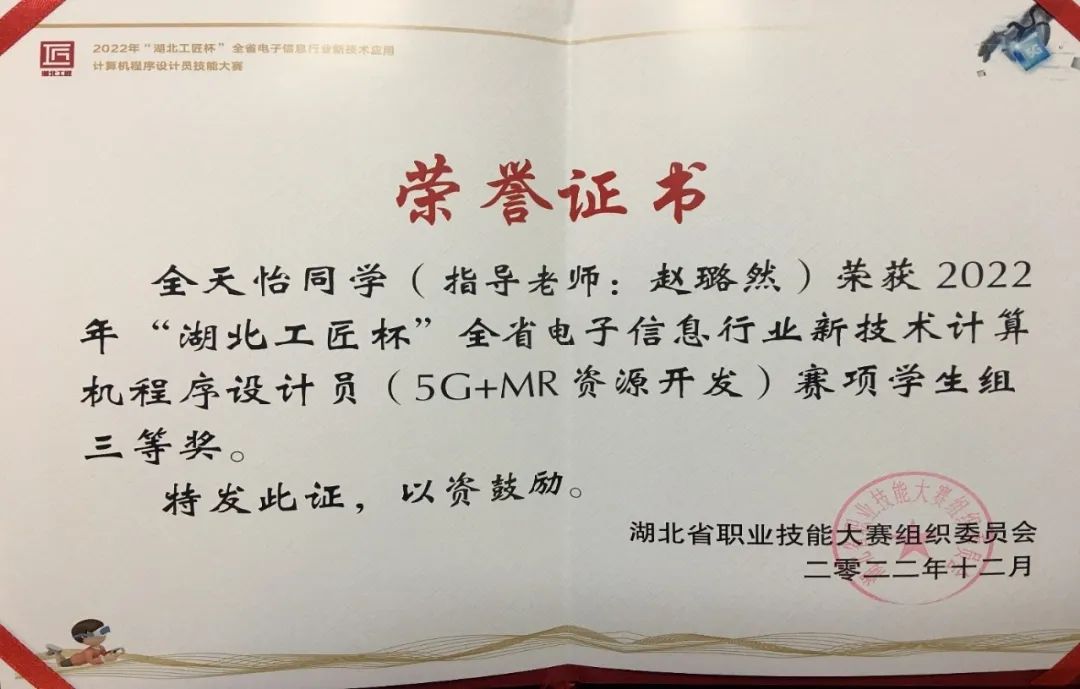 湖北工匠
2022年“湖北工匠杯”全省电子信息行业新技术应用
计算机程序设计员技能大赛
5G
荣誉证书
全天怡同学（指导老师：赵璐然）荣获2022
年“湖北工匠杯”全省电子信息行业新技术计算
机程序设计员（5G+MR资源开发）赛项学生组
三等奖。
特发此证，以资鼓励。
湖北省职业技能大赛组织委员会
二零二二年十二月
湖北省职业技能大赛组织委员会